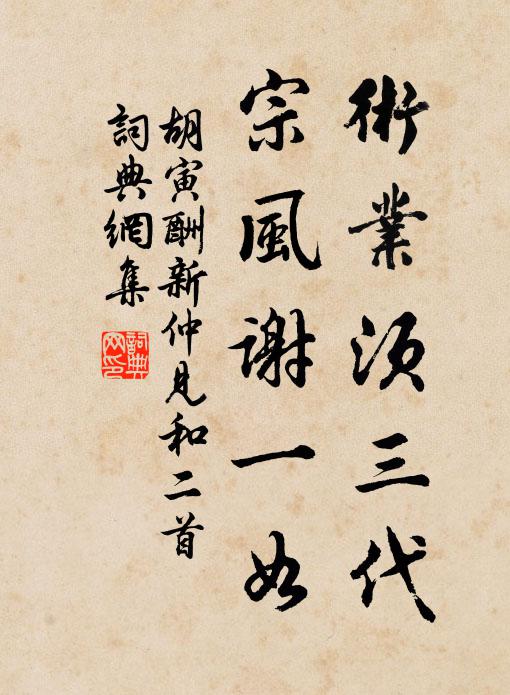 術業須三代
宗風謝一如
胡寅酬新仲見和二首
詞典網集
詞典網印